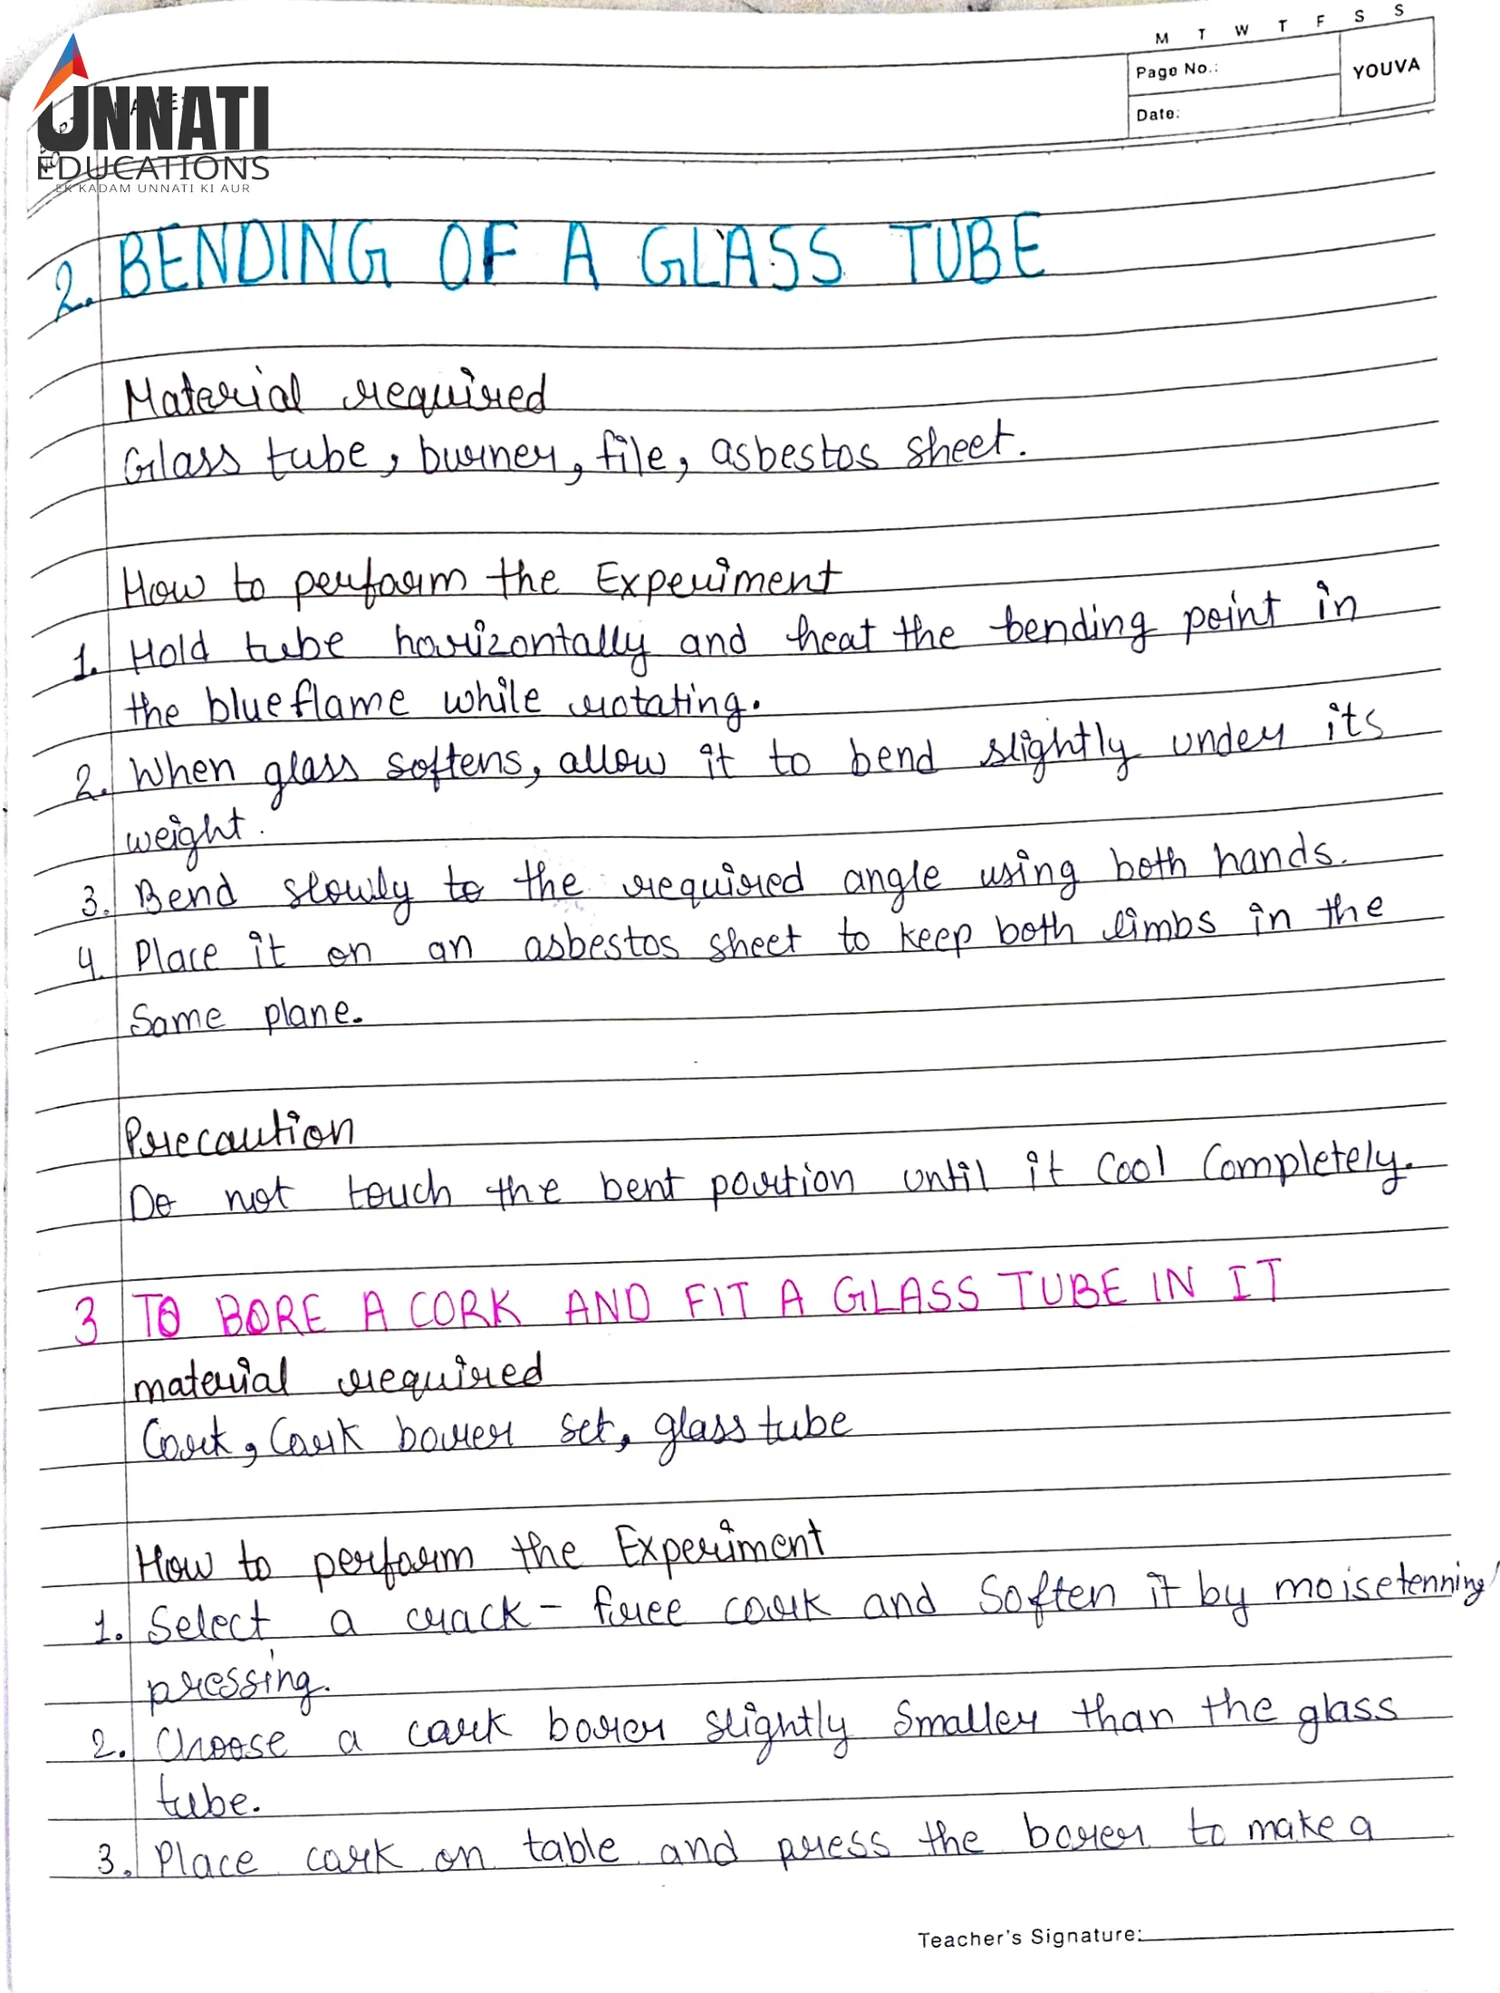 M T W T F S S
Page No.:
YOUVA
Date:
UNNATI
EDUCATIONS
EK KADAM UNNATI KI AUR
2. BENDING OF A GLASS TUBE
Material required
Glass tube, burner, file, asbestos sheet.
How to perform the Experiment
1. Hold tube horizontally and heat the bending point in
the blue flame while rotating.
2. When glass softens, allow it to bend slightly under its
weight.
3. Bend slowly to the required angle using both hands.
4. Place it on an asbestos sheet to keep both limbs in the
Same plane.
Precaution
Do not touch the bent portion until it cool completely.
3 TO BORE A CORK AND FIT A GLASS TUBE IN IT
material required
Cork, Cork borer set, glass tube
How to perform the Experiment
1. Select a crack-free cork and Soften it by moisetenning/
pressing.
2. Choose a cork borer slightly smaller than the glass
tube.
3. Place cork on table and press the borer to make a
Teacher's Signature: